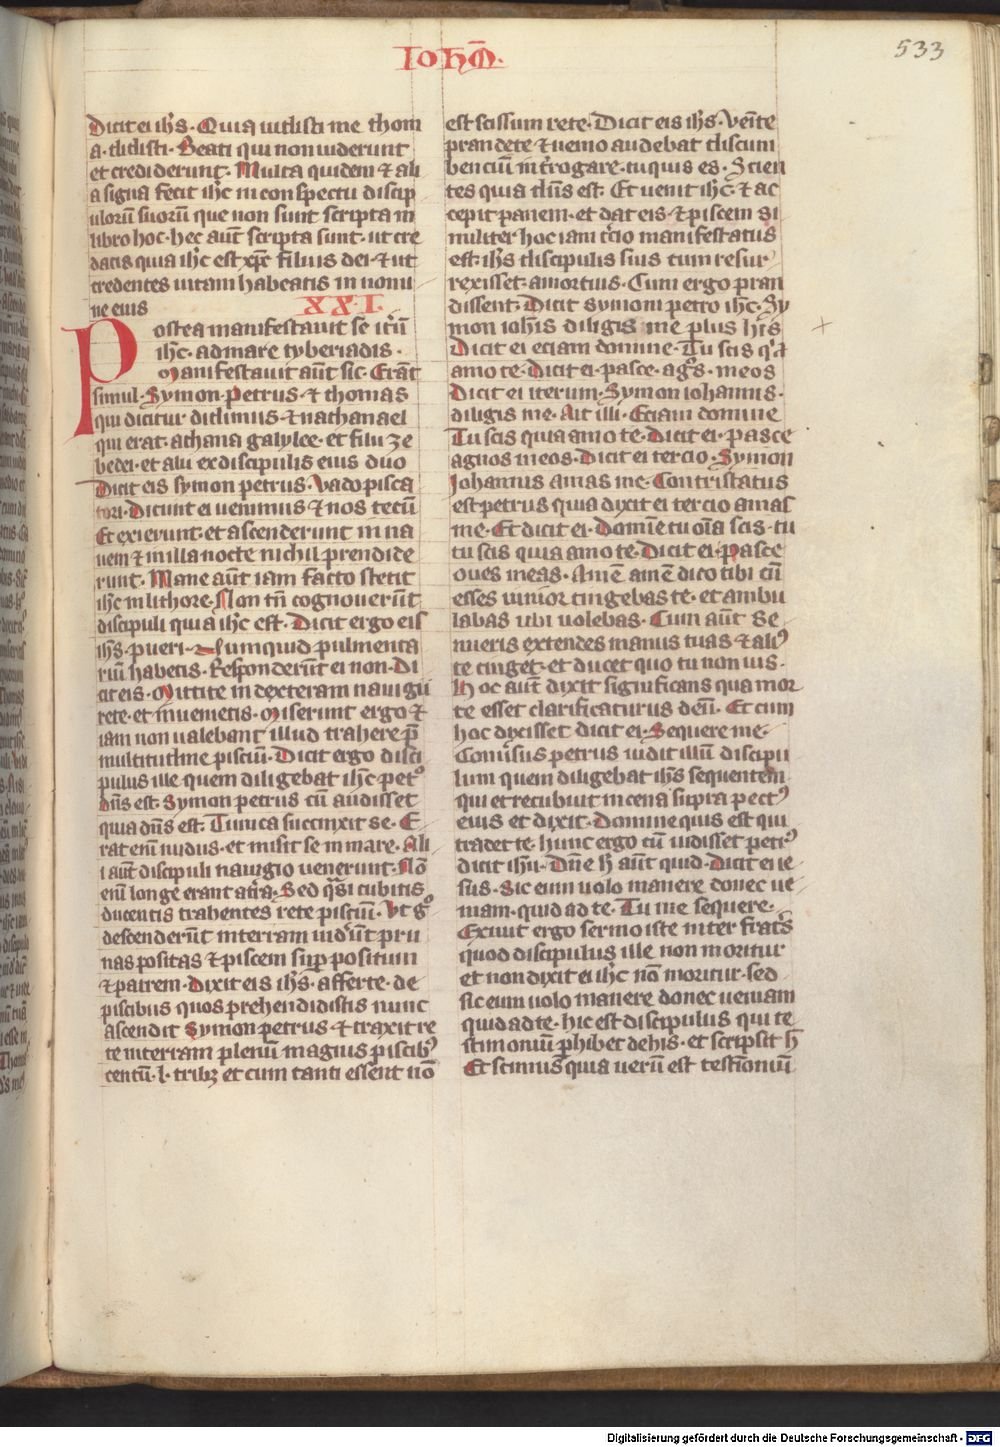 Ioħes.
533
Dicit ei ih̄s. Quia uidisti me thom
a. didisti. Beati qui non uiderunt
et crediderunt. Multa quidem ⁊ ali
a signa fecit ih̄c in conspectu discip
ulorū suorū que non sunt scripta in
libro hoc. hec aūt scripta sunt. ut cre
datis quia ih̄c est xp̄c filius dei. ⁊ ut
credentes uitam habeatis in nomi
ne eius
XXI.
Postea manifestauit se itₑū
ih̄c. ad mare tyberiadis.
Manifestauit aūt sic. Erāt
simul. Symon Petrus ⁊ thomas
qui dicitur didimus ⁊ nathanael
qui erat. a chana galylee. et filii ze
bedei. et alii ex discipulis eius duo
Dicit eis symon petrus. Vado pisca
tori. Dicunt ei uenimus ⁊ nos tecū
Et exierunt. et ascenderunt in na
uem ⁊ in illa nocte nichil prendide
runt. Mane aūt iam facto stetit
ih̄c in lithore. Non tn̄ cognouerūt
discipuli quia ih̄c est. Dicit ergo eis
ih̄s. pueri. Numquid pulmenta
riū habetis. Responderūt ei non. Di
cit eis. Mittite in dexteram nauigii
rete. et inuenietis. Miserunt ergo ⁊
iam non ualebant illud trahere p̄
multitudine pisciū. Dicit ergo disci
pulus ille quem diligebat ih̄c petᵒ
dn̄s est. Symon petrus cū audisset
quia dn̄s est. Tunica succinxit se. E
rat enī nudus. et misit se in mare. Ali
i aūt discipuli nauigio uenerunt. Nō
enī longe erant a tr̄a. Sed qᵃsi cubitis
ducentis trahentes rete pisciū. Vt gͦ
descenderūt in terram uidₑūt pru
nas positas ⁊ piscem sup̄ positum
⁊ patrem. Dixit eis ih̄s. afferte. de
piscibus quos prehendidistis nunc
ascendit Symon petrus ⁊ traxit re
te in terram plenū magius piscibꝰ
centū. l. tribꝫ et cum tanti essent nō
est scissum rete. Dicit eis ih̄s. Venīte
prandete ⁊ nemo audebat discum
benciū int̄rogare. tu quis es. Scien
tes quia dn̄s est. Et uenit ih̄c. ⁊ ac
cepit panem. et dat eis. ⁊ piscem si
militer hoc iam t̄cio manifestatus
est. ih̄s discipulis suis cum resur
rexisset. a mortuis. Cum ergo pran
dissent. Dicit symoni petro ih̄c. Sy
mon ioh̄is diligis me plus his
Dicit ei eciam domine. Tu scis qᵃ
amo te. Dicit ei. pasce. agᵒs. meos
Dicit ei iterum. Symon iohannis.
diligis me. Ait illi. Eciam domine
Tu scis quia amo te. Dicit ei. pasce
agnos meos. Dicit ei tercio. Symon
Johannis amas me. Contristatus
est petrus quia dixit ei tercio amas
me. Et dicit ei. Domīe tu oīa scis. tu
tu scis quia amo te. Dicit ei. pasce
oues meas. Amē amē dico tibi cū
esses iunior cingebas te. et ambu
labas ubi uolebas. Cum aūt se
nueris extendes manus tuas ⁊ aliꝰ
te cinget. et ducet quo tu non uis.
Hoc aūt dixit significans qua mor
te esset clarificaturus deū. Et cum
hoc dixisset dicit ei. Sequere me.
Conūsus petrus uidit illū discipu
lum quem diligebat ih̄s sequentem
qui et recubuit in cena supra pectꝰ
eius et dixit. Domine quis est qui
tradet te. hunc ergo cū uidisset petrꝰ
dicit ih̄u. Dn̄e h̄ aūt quid. Dicit ei ie
sus. Sic eum uolo manere donec ue
niam. quid ad te. Tu me sequere.
Exiuit ergo sermo iste inter fratᵉs
quod discipulus ille non moritur
et non dixit ei ih̄c nō moritur. sed
sic eum uolo manere donec ueniam
quid ad te. hic est discipulus qui te
stimoniū ꝑhibet de his. et scripsit h̄
Et scimus quia uerū est testīoniū
Digitalisierung gefördert durch die Deutsche Forschungsgemeinschaft - DFG